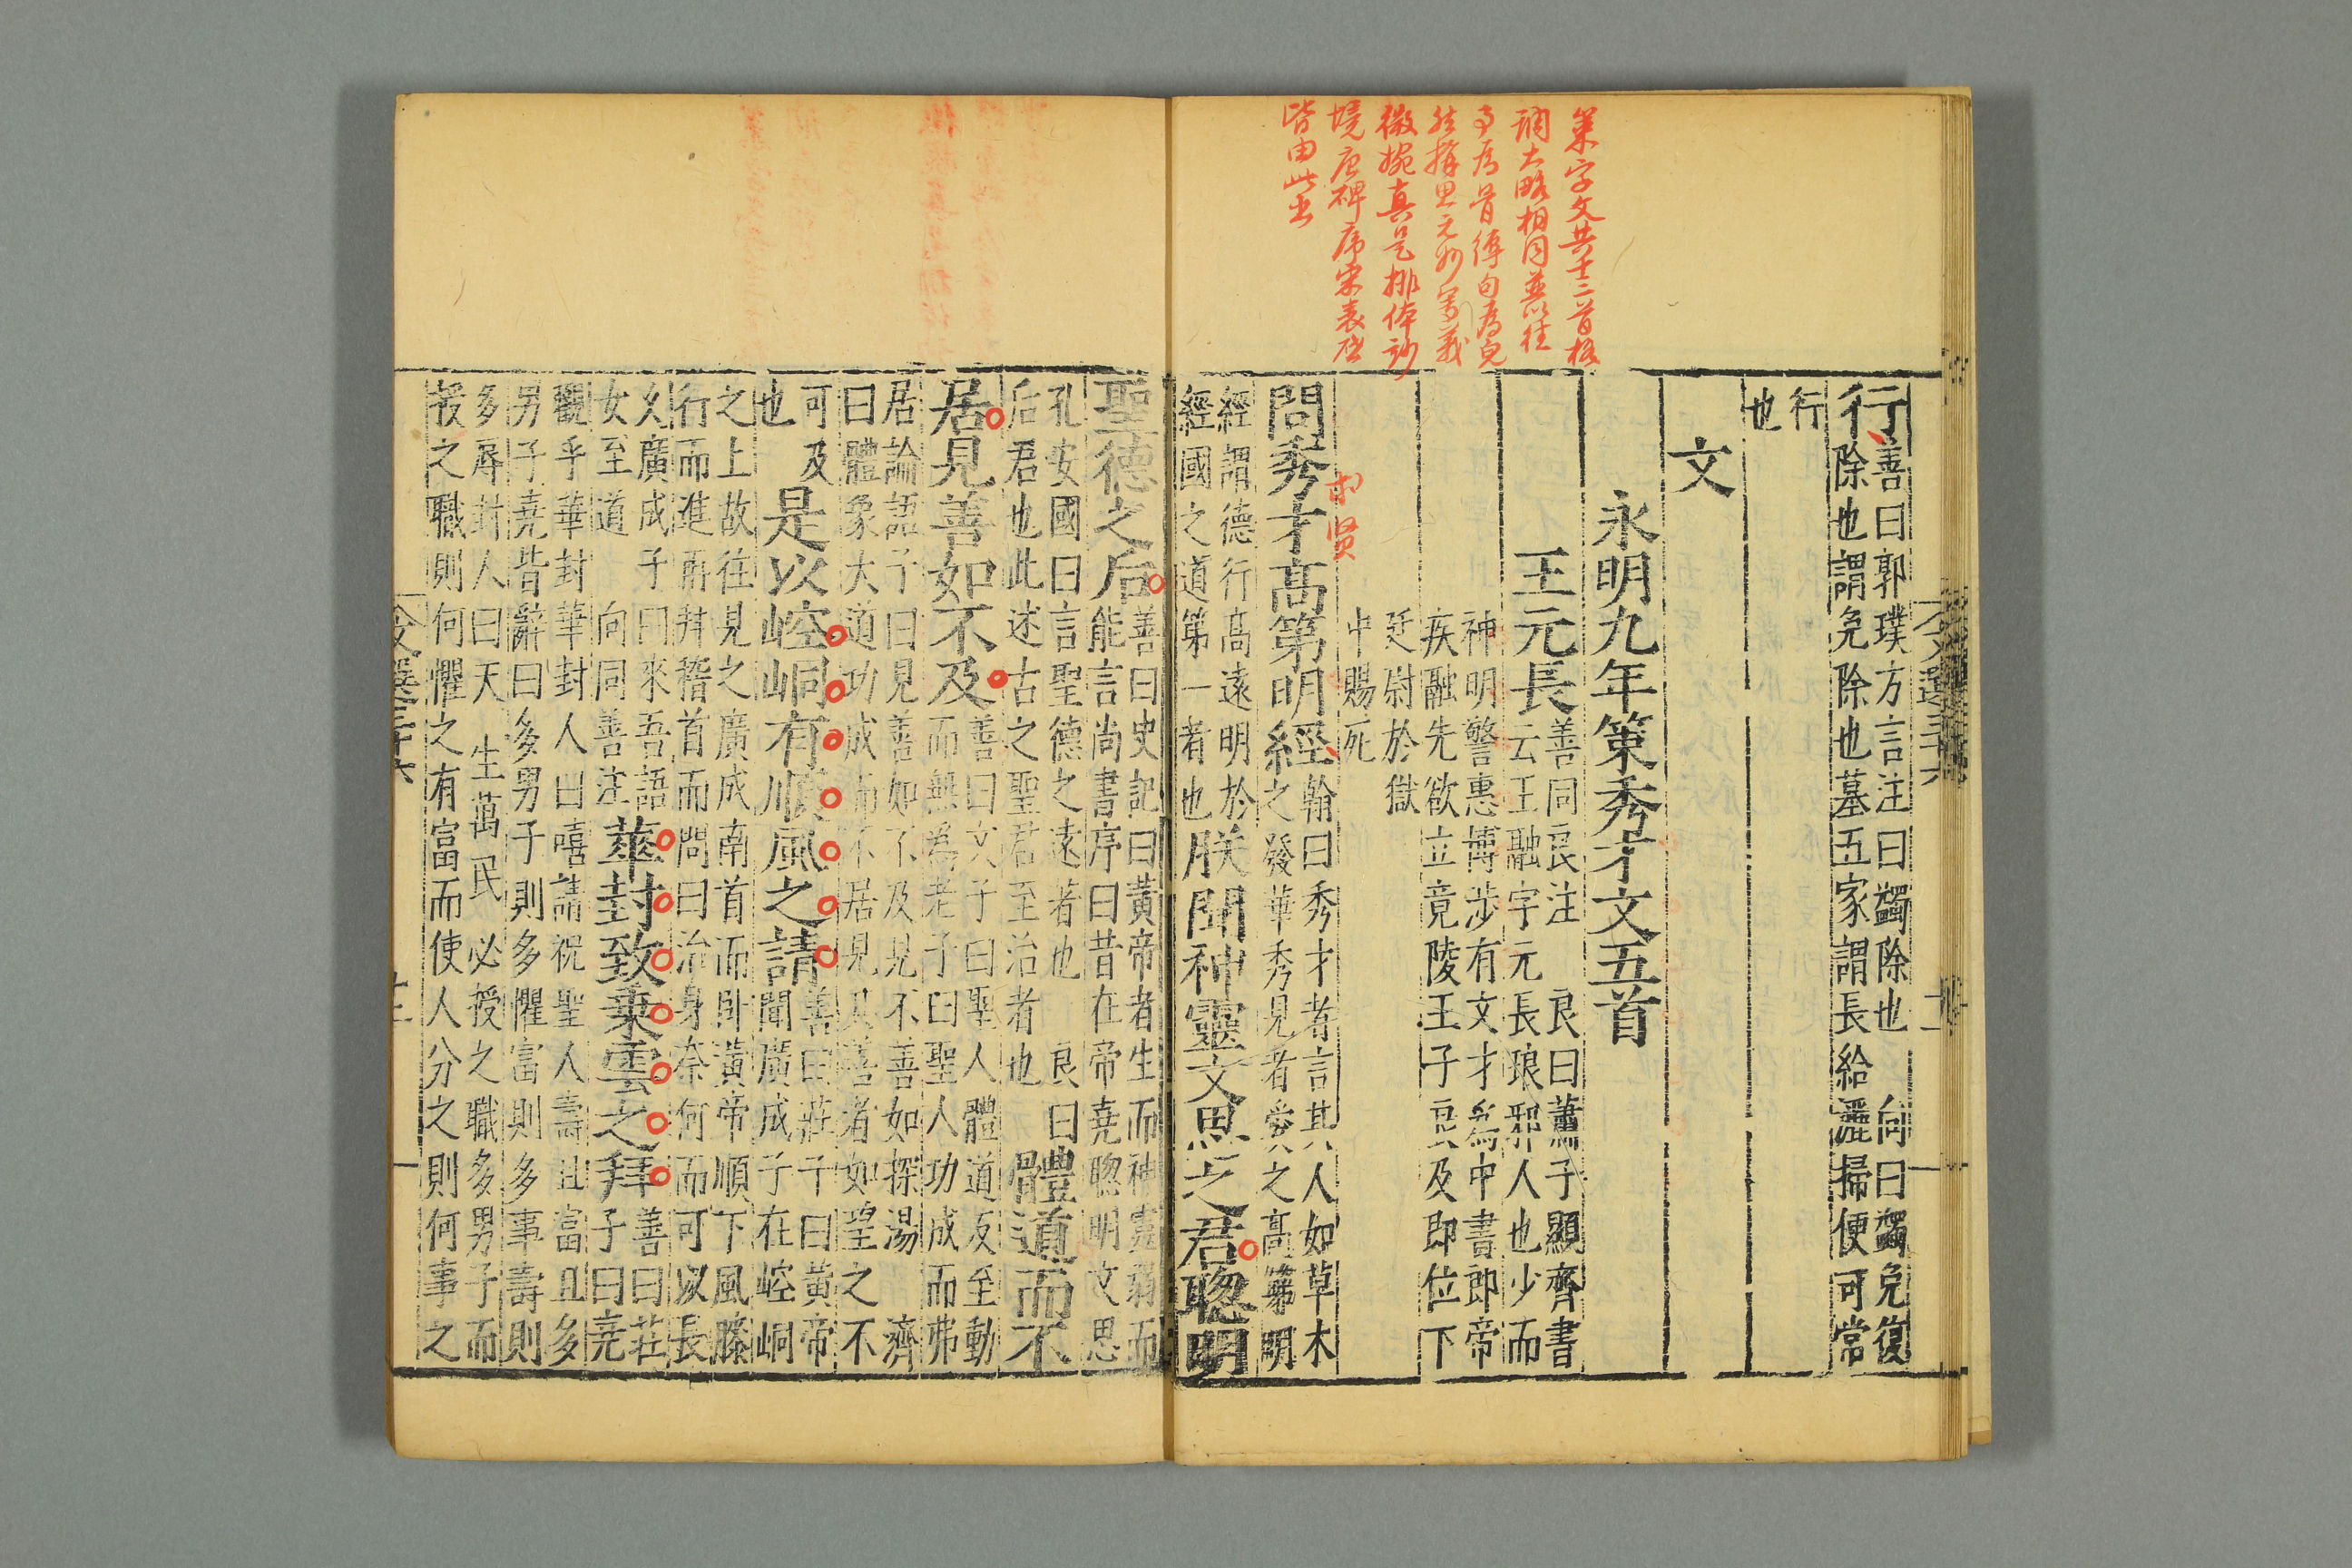 策字文共十三首格
調大略相同甚以徃
事爲骨縟句爲皃
然構思元妙寓義
微婉真是排体妙
境唐碑序宋表啓
皆由此出
行
善曰郭璞方言注曰蠲除也　向曰蠲免復
除也謂免除也墓五家謂長給灑掃便可常
行
也
文
永明九年策秀才文五首
王元長
善同良注　良曰蕭子顯齊書
云王融字元長琅邪人也少而
神明警惠博涉有文才爲中書郎帝
疾融先欲立竟陵王子良及即位下
廷尉於獄
中賜死
問秀才高第明經
翰曰秀才者言其人如草木
之發華秀見者愛之高第明
經謂德行高遠明於
經國之道第一者也
朕聞神靈文思之君聰明
聖德之后
善曰史記曰黃帝者生而神靈弱而
能言尚書序曰昔在帝堯聰明文思
孔安國曰言聖德之遠著也　良曰
后君也此述古之聖君至治者也
體道而不
居見善如不及
善曰文子曰聖人體道反至動
而無爲老子曰聖人功成而弗
居論語子曰見善如不及見不善如探湯　濟
曰體象大道功成而不居見其善者如望之不
可及
也
是以崆峒有順風之請
善曰莊子曰黃帝
聞廣成子在崆峒
之上故往見之廣成南首而卧黃帝順下風膝
行而進再拜稽首而問曰治身奈何而可以長
久廣成子曰來吾語
女至道　向同善注
華封致乗雲之拜
善曰莊
子曰堯
觀乎華封華封人曰嘻請祝聖人壽且富且多
男子堯皆辭曰多男子則多懼富則多事壽則
多辱封人曰天生萬民必授之職多男子而
授之職則何懼之有富而使人分之則何事之